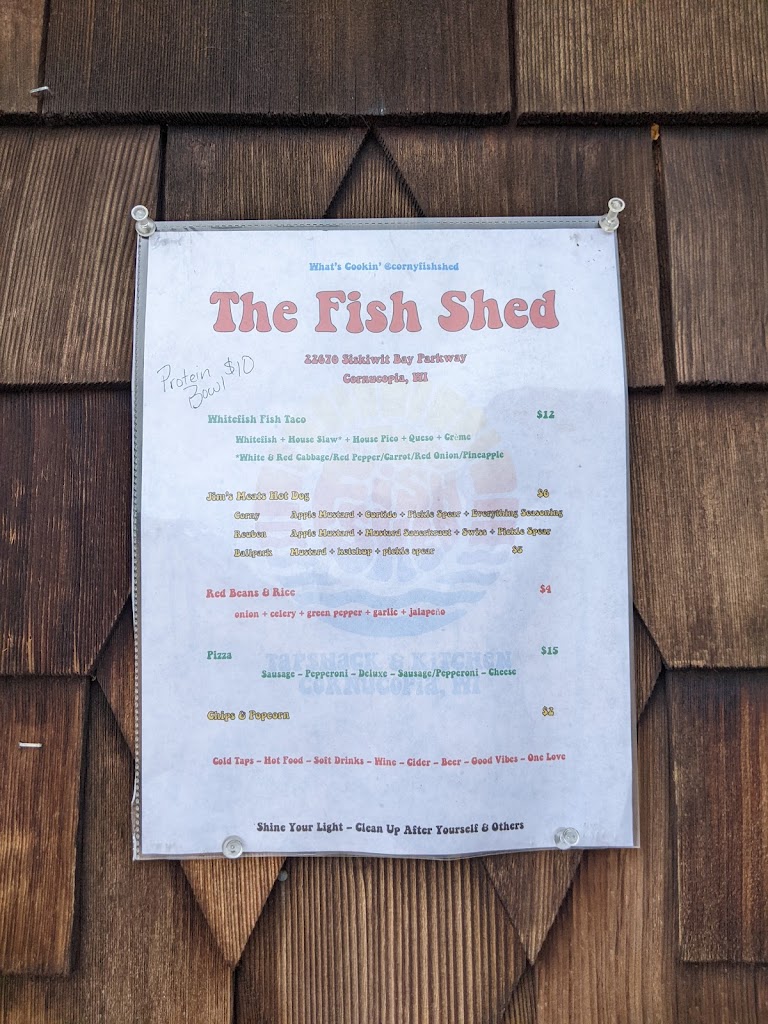 What's Cookin' @cornyfishshed
The Fish Shed
22670 Siskiwit Bay Parkway
Cornucopia, WI
Protein $10
Bowl
Whitefish Fish Taco $12
Whitefish + House Slaw* + House Pico + Queso + Crème
*White & Red Cabbage/Red Pepper/Carrot/Red Onion/Pineapple
Jim's Meats Hot Dog $6
Corny Apple Mustard + Curtido + Pickle Spear + Everything Seasoning
Reuben Apple Mustard + Mustard Sauerkraut + Swiss + Pickle Spear
Ballpark Mustard + ketchup + pickle spear $5
Red Beans & Rice $4
onion + celery + green pepper + garlic + jalapeño
Pizza $15
TAPSHACK & KITCHEN
Sausage – Pepperoni – Deluxe – Sausage/Pepperoni – Cheese
CORNUCOPIA, WI
Chips & Popcorn $2
Cold Taps – Hot Food – Soft Drinks – Wine – Cider – Beer – Good Vibes – One Love
Shine Your Light – Clean Up After Yourself & Others